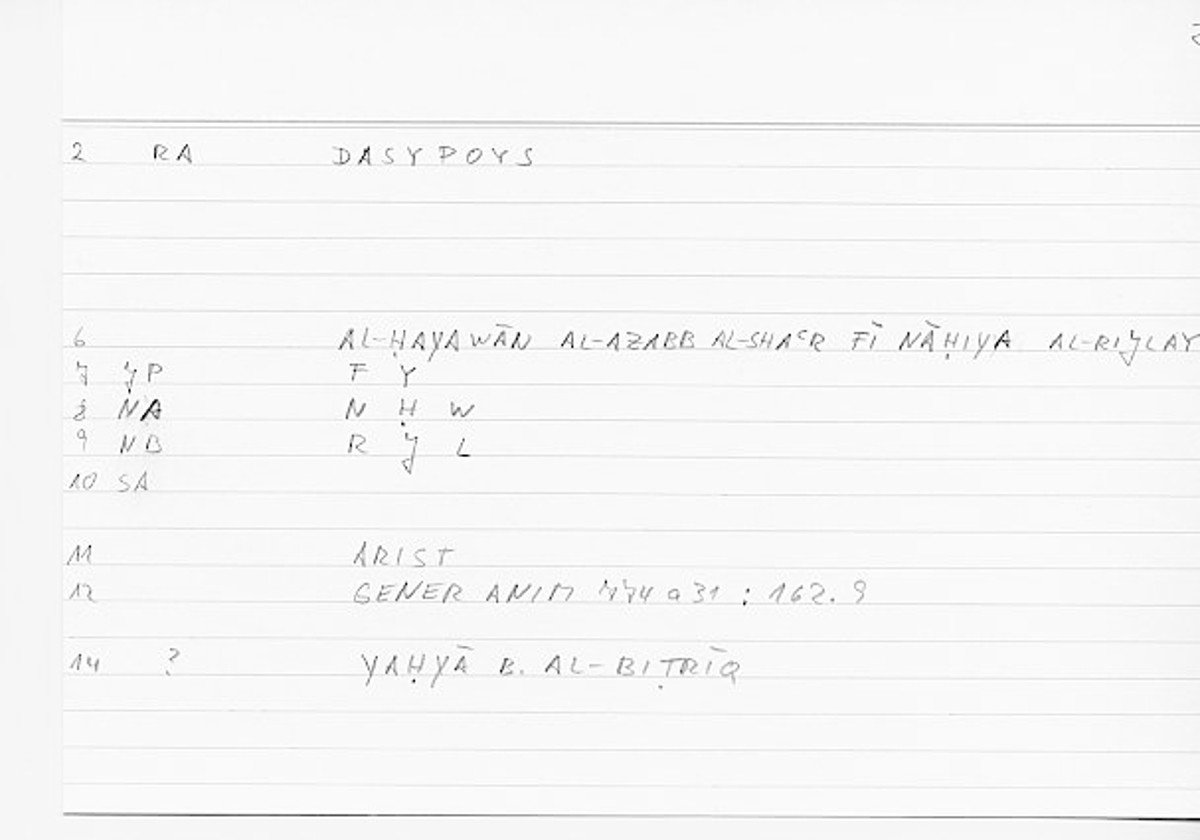 2 RA DASYPOYS
6 AL-ḤAYAWĀN AL-AZABB AL-SHAʿR FĪ NĀḤIYA AL-RIJLAY
7 JP F Y
8 NA N Ḥ W
9 NB R J L
10 SA
11 ARIST
12 GENER ANIM 774 a 31 : 162.9
14 ? YAḤYĀ B. AL-BIṬRĪQ